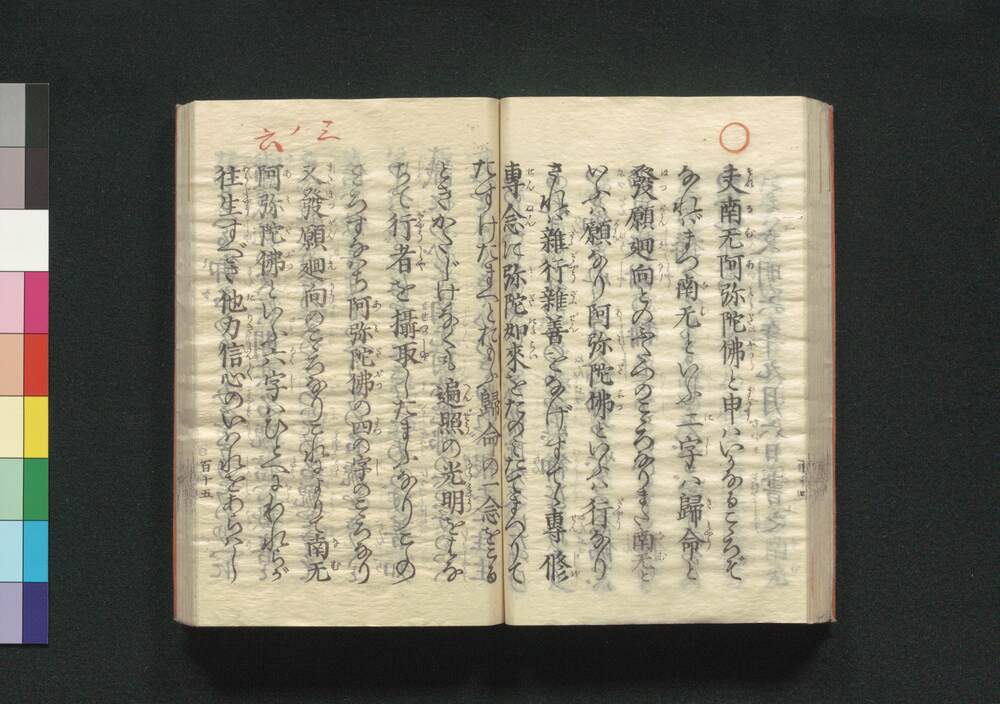 夫南无阿弥陀佛と申はいかなるこゝろぞ
なればまづ南无といふ二字は歸命と
發願廻向とのふたつのこゝろなりまた南无と
いふは願なり阿弥陀佛といふは行なり
されば雜行雜善をなげすてゝ專修
專念に弥陀如來をたのみたてまつりて
たすけたまへとおもふ歸命の一念をこる
ときかたじけなくも遍照の光明をはな
ちて行者を攝取したまふなりこの
こゝろすなはち阿弥陀佛の四の字のこゝろなり
又發願廻向のこゝろなりこれによりて南无
阿弥陀佛といふ六字はひとへにわれらが
往生すべき他力信心のいはれをあらはし
三ノ六
百十五